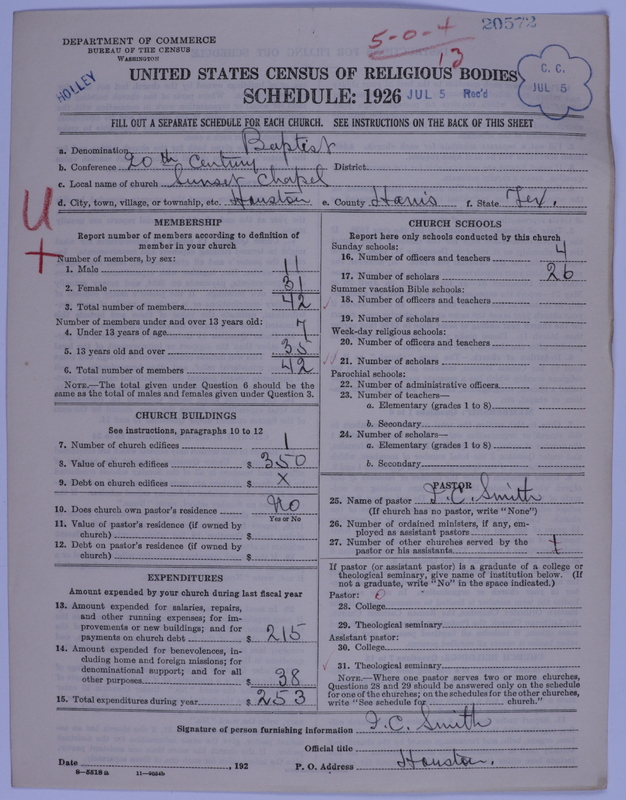 20572
5-0-4
13
DEPARTMENT OF COMMERCE
BUREAU OF THE CENSUS
WASHINGTON
HOLLEY
UNITED STATES CENSUS OF RELIGIOUS BODIES
SCHEDULE: 1926 JUL 5 Rec'd
C. C.
JUL 5
FILL OUT A SEPARATE SCHEDULE FOR EACH CHURCH. SEE INSTRUCTIONS ON THE BACK OF THIS SHEET
a. Denomination Baptist
b. Conference 20th Century District
c. Local name of church Sunset Chapel
d. City, town, village, or township, etc. Houston e. County Harris f. State Tex.
U
+
MEMBERSHIP
Report number of members according to definition of
member in your church
Number of members, by sex:
1. Male 11
2. Female 31
3. Total number of members 42
Number of members under and over 13 years old:
4. Under 13 years of age 7
5. 13 years old and over 35
6. Total number of members 42
NOTE.—The total given under Question 6 should be the
same as the total of males and females given under Question 3.
CHURCH BUILDINGS
See instructions, paragraphs 10 to 12
7. Number of church edifices 1
8. Value of church edifices $ 350
9. Debt on church edifices $ X
10. Does church own pastor's residence No
Yes or No
11. Value of pastor's residence (if owned by
church) $
12. Debt on pastor's residence (if owned by
church) $
EXPENDITURES
Amount expended by your church during last fiscal year
13. Amount expended for salaries, repairs,
and other running expenses; for im-
provements or new buildings; and for
payments on church debt $ 215
14. Amount expended for benevolences, in-
cluding home and foreign missions; for
denominational support; and for all
other purposes $ 38
15. Total expenditures during year $ 253
CHURCH SCHOOLS
Report here only schools conducted by this church
Sunday schools:
16. Number of officers and teachers 4
17. Number of scholars 26
Summer vacation Bible schools:
18. Number of officers and teachers
19. Number of scholars
Week-day religious schools:
20. Number of officers and teachers
21. Number of scholars
Parochial schools:
22. Number of administrative officers
23. Number of teachers—
a. Elementary (grades 1 to 8)
b. Secondary
24. Number of scholars—
a. Elementary (grades 1 to 8)
b. Secondary
PASTOR
25. Name of pastor J. C. Smith
(If church has no pastor, write "None")
26. Number of ordained ministers, if any, em-
ployed as assistant pastors
27. Number of other churches served by the
pastor or his assistants
If pastor (or assistant pastor) is a graduate of a college or
theological seminary, give name of institution below. (If
not a graduate, write "No" in the space indicated.)
Pastor: 0
28. College
29. Theological seminary
Assistant pastor:
30. College
31. Theological seminary
NOTE.—Where one pastor serves two or more churches,
Questions 28 and 29 should be answered only on the schedule
for one of the churches; on the schedules for the other churches,
write "See schedule for church."
Signature of person furnishing information J. C. Smith
Official title
Date , 192 P. O. Address Houston.
8—5518a 11—9054b